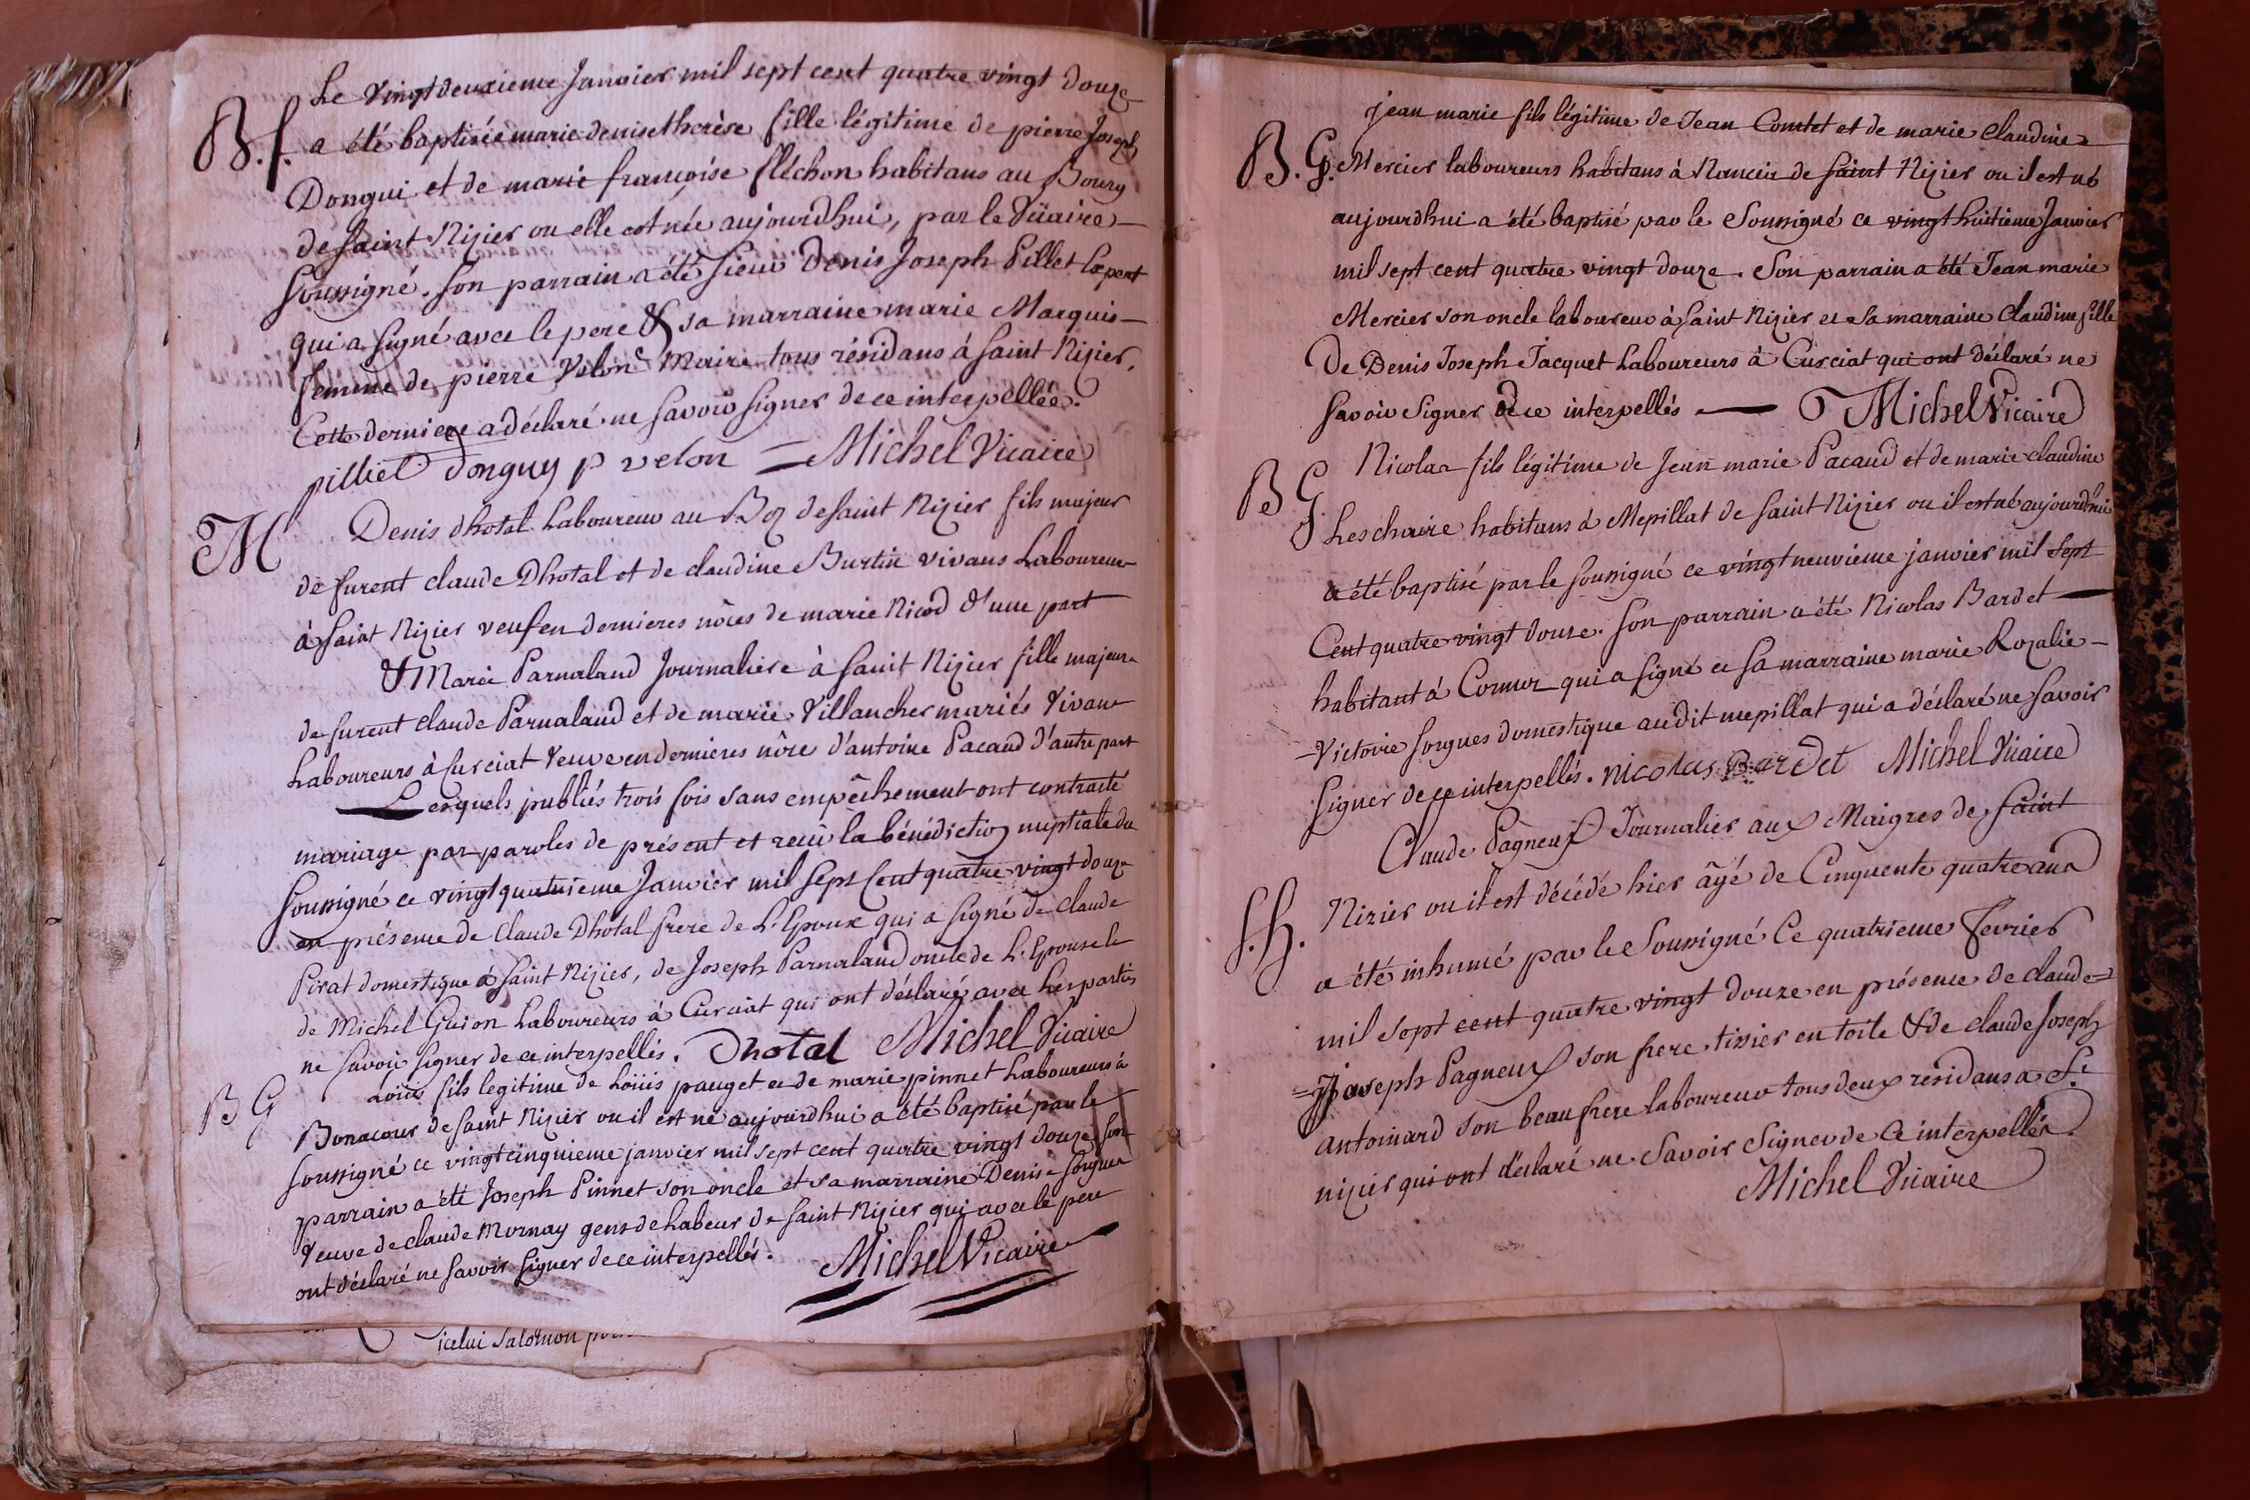 Le vingtdeuxieme Janvier mil sept cent quatre vingt douze
B. f. a été baptisée marie denise therèse fille légitime de pierre Joseph
Dongui et de marie françoise fléchon habitans au Bourg
de Saint Nizier ou elle est née aujourdhui, par le Vicaire
Soussigné. Son parrain a été Sieur Denis Joseph Pillet
qui a signé avec le pere & sa marraine marie Marquis
femme de pierre Velon Maire tous résidans à Saint Nizier.
Cette derniere a déclaré ne savoir signer de ce interpellée.
pilliet donguy p velon = Michel Vicaire
M Denis dhotal Laboureur au Boz de Saint Nizier fils majeur
de furent claude Dhotal et de claudine Burtin vivans Laboureurs
à Saint Nizier veuf en dernieres nôces de marie Nicod d'une part
& Marie Parnaland Journaliere à Saint Nizier fille majeure
de furent claude Parnaland et de marie Villancher mariés Vivans
Laboureurs à Curciat veuve en dernieres nôce d'antoine Pacaud d'autre part
Lesquels publiés trois fois sans empêchement ont contracté
mariage par paroles de présent et reçu la bénédiction nuptiale du
Soussigné ce vingtquatrieme Janvier mil Sept Cent quatre vingt douze
en présence de Claude Dhotal frere de L'Epoux qui a signé de claude
Pirat domestique à Saint Nizier, de Joseph Parnaland oncle de L'Epouse
de Michel Guion Laboureurs à Curciat qui ont déclaré avec Les parties
ne savoir signer de ce interpellés. Dhotal Michel Vicaire
B G Loüis fils legitime de Loüis pauget et de marie pinnet Laboureurs à
Bonacour de Saint Nizier ou il est né aujourdhui a été baptisé par le
Soussigné ce vingtcinquieme janvier mil sept cent quatre vingt douze son
parrain a été Joseph Pinnet son oncle et sa marraine Denise Sorgues
Veuve de claude Mornay gens de Labeur de Saint Nizier qui avec le pere
ont déclaré ne savoir signer de ce interpellés. Michel Vicaire
icelui Salomon
jean marie fils légitime de Jean Comtet et de marie claudine
B. G. Mercier laboureurs habitans à Nancin de Saint Nizier ou il est né
aujourdhui a été baptisé par le Soussigné ce vingthuitieme Janvier
mil sept cent quatre vingt douze. Son parrain a été Jean marie
Mercier son oncle laboureur à Saint Nizier et sa marraine Claudine fille
De Denis Joseph Jacquet Laboureurs à Curciat qui ont déclaré ne
Savoir Signer de ce interpellés Michel Vicaire
B G Nicolas fils légitime de Jean marie Pacaud et de marie claudine
Leschaire habitans à Mepillat de Saint Nizier ou il est né aujourdhui
a été baptisé par le soussigné ce vingtneuvieme janvier mil Sept
Cent quatre vingt douze. Son parrain a été Nicolas Bardet
habitant à Cormoz qui a signé et sa marraine marie Rozalie
Victoire sorgues domestique audit mepillat qui a déclaré ne savoir
signer de ce interpellés. nicolas Bardet Michel Vicaire
Claude Pagneux Journalier aux Maigres de Saint
S. h. Nizier ou il est décédé hier âgé de Cinquente quatre ans
a été inhumé par le Soussigné Ce quatrieme Fevrier
mil sept cent quatre vingt douze en présence de claude
Joseph Pagneux son frere tissier en toile & de claude Joseph
antoinard son beau frere laboureur tous deux résidans a St.
nizier qui ont déclaré ne Savoir Signer de Ce interpellés.
Michel Vicaire